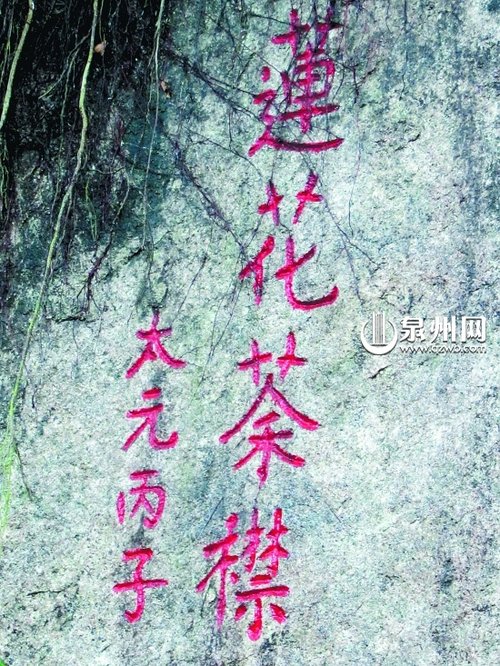 蓮花荼襟
太元丙子
泉州网
www.qzwb.com